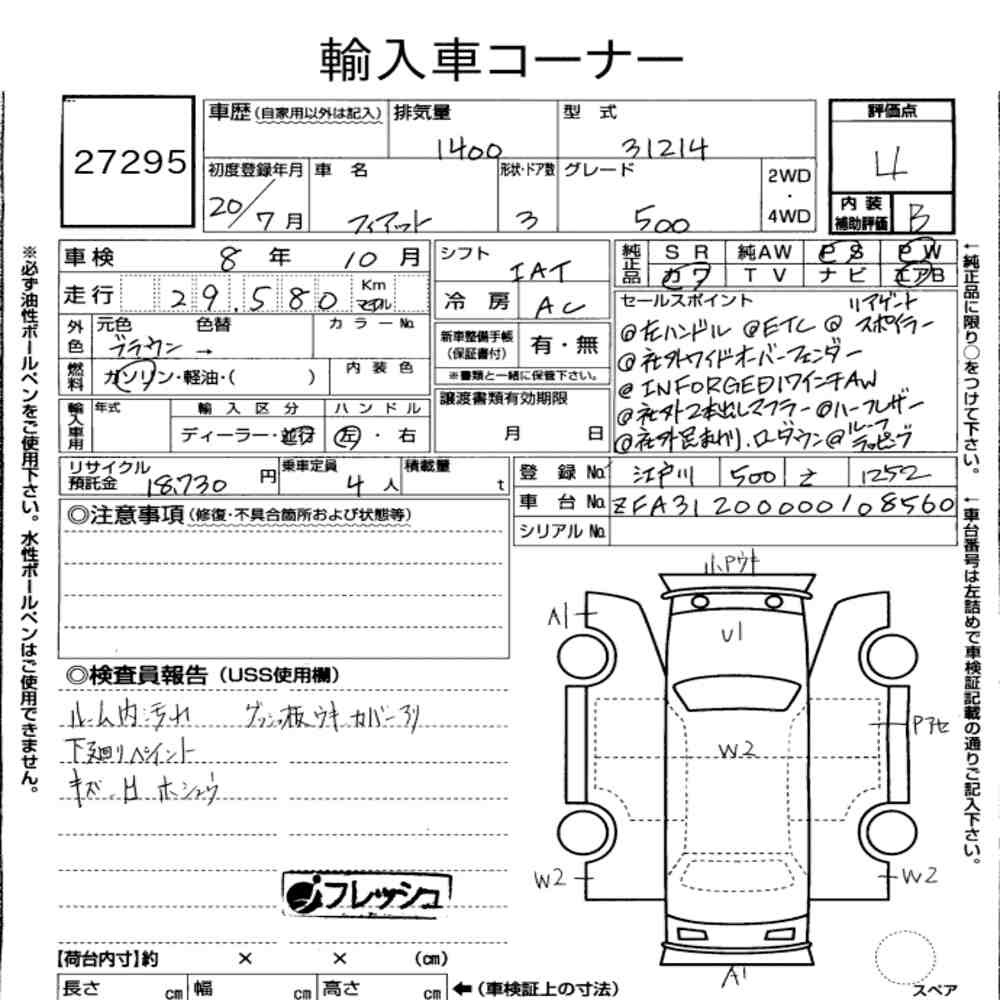 輸入車コーナー
27295
車歴(自家用以外は記入) 排気量 型 式 評価点
1400 31214 4
初度登録年月 車 名 形状・ドア数 グレード 2WD ・ 4WD
20/7月 フィアット 3 500
内装補助評価 B
車検 8 年 10 月
走行 29,580 Km マイル
外色 元色 色替 カラーNo.
ブラウン →
燃料 ガソリン・軽油・( ) 内装色
輸入車用 年式 輸入区分 ハンドル
ディーラー・並行 左・右
シフト IAT
冷房 AC
新車整備手帳(保証書付) 有・無
※書類と一緒に保管下さい。
譲渡書類有効期限
月 日
純正品 SR 純AW PS PW
カワ TV ナビ エアB
セールスポイント リアゲート
@左ハンドル @ETC @スポイラー
@社外ワイドオーバーフェンダー
@INFORGED17インチAW
@社外2本出しマフラー @ハーフレザー
@社外足まわり,ローダウン@ルーフラッピング
リサイクル預託金 18,730 円 乗車定員 4 人 積載量 t
登録No. 江戸川 500 そ 1252
車台No. ZFA31200000108560
シリアルNo.
◎注意事項(修復・不具合箇所および状態等)
◎検査員報告(USS使用欄)
ルーム内汚れ カバースリ
下廻りペイント
キズ・凹 ホシュウ
フレッシュ
小Pウキ
A1
U1
W2
Pアセ
W2
W2
A1
スペア
【荷台内寸】約 × × (cm)
長さ cm 幅 cm 高さ cm ←(車検証上の寸法)
※必ず油性ボールペンをご使用下さい。水性ボールペンはご使用できません。
←純正品に限り○をつけて下さい。
←車台番号は左詰めで車検証記載の通りご記入下さい。